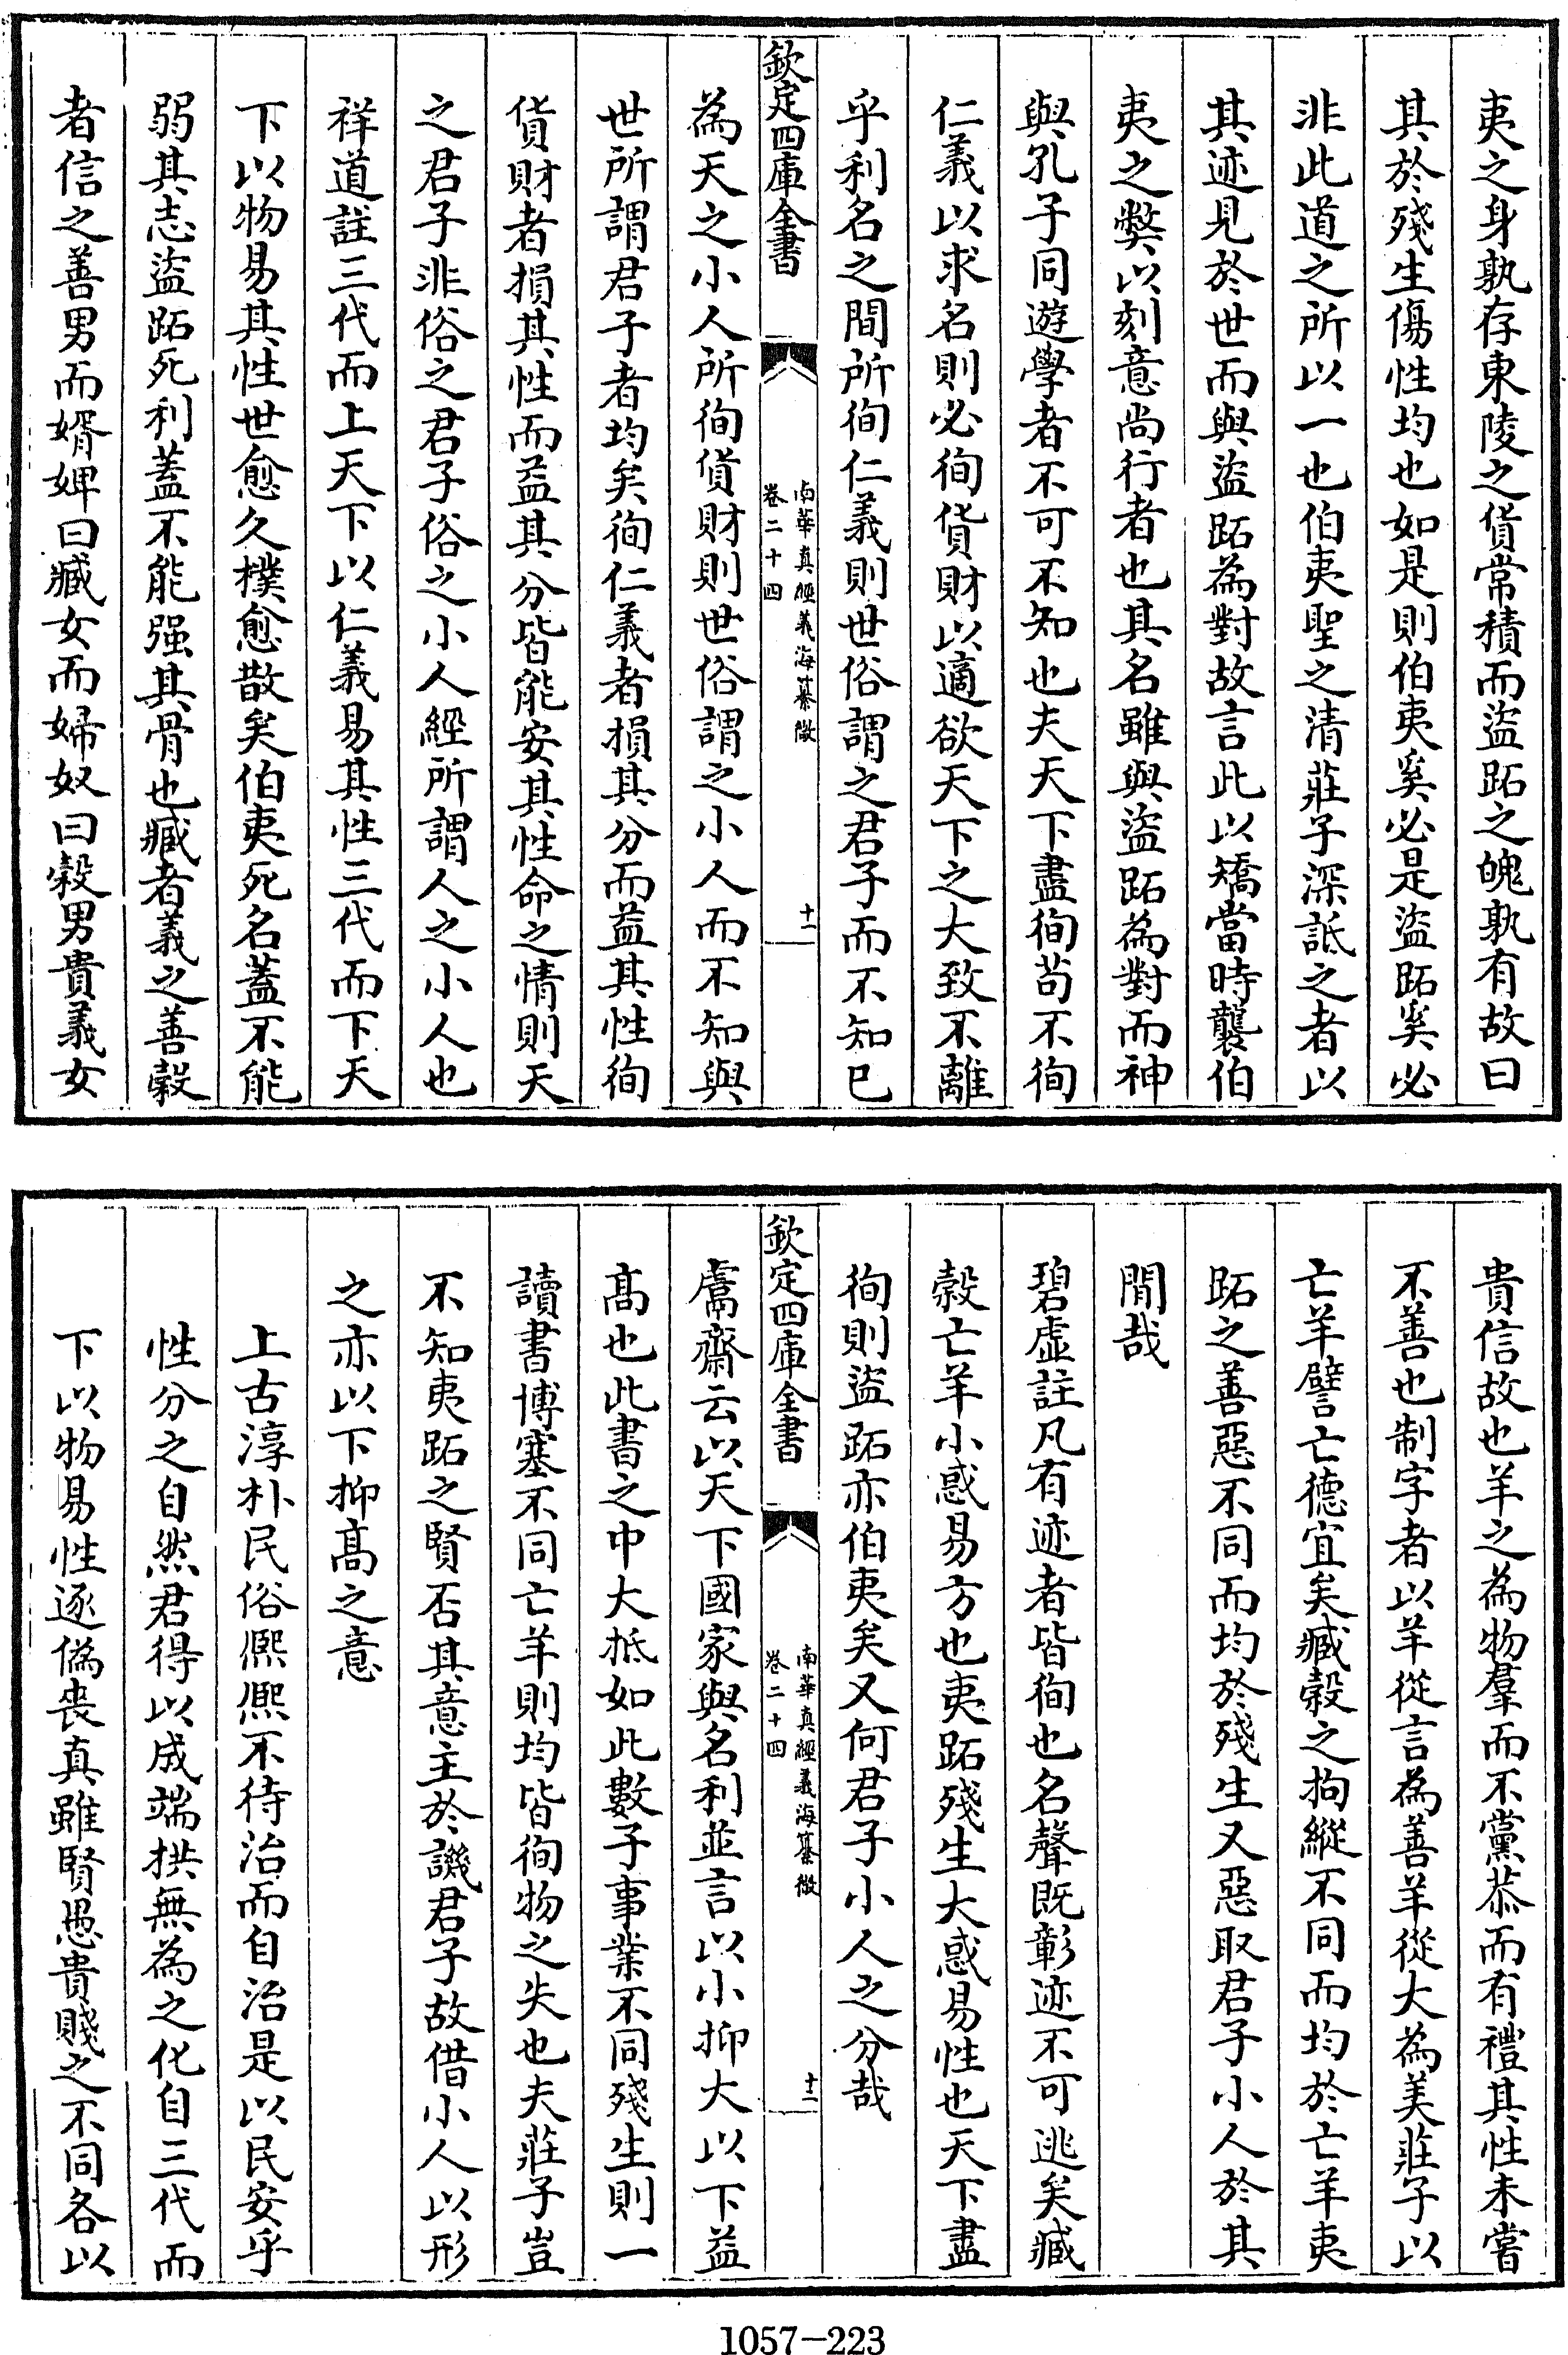 夷之身孰存東陵之貨常積而盜跖之魄孰有故曰
其於殘生傷性均也如是則伯夷奚必是盜跖奚必
非此道之所以一也伯夷聖之清莊子深詆之者以
其迹見於世而與盜跖為對故言此以矯當時襲伯
夷之弊以刻意尚行者也其名雖與盜跖為對而神
與孔子同遊學者不可不知也夫天下盡徇苟不徇
仁義以求名則必徇貨財以適欲天下之大致不離
乎利名之間所徇仁義則世俗謂之君子而不知已
欽定四庫全書
南華真經義海纂微
卷二十四
十一
為天之小人所徇貨財則世俗謂之小人而不知與
世所謂君子者均矣徇仁義者損其分而益其性徇
貨財者損其性而益其分皆能安其性命之情則天
之君子非俗之君子俗之小人經所謂人之小人也
祥道註三代而上天下以仁義易其性三代而下天
下以物易其性世愈久樸愈散矣伯夷死名蓋不能
弱其志盜跖死利蓋不能强其骨也臧者義之善穀
者信之善男而婿婢曰臧女而婦奴曰穀男貴義女
貴信故也羊之為物羣而不黨恭而有禮其性未嘗
不善也制字者以羊從言為善羊從大為美莊子以
亡羊譬亡德宜矣臧穀之拘縱不同而均於亡羊夷
跖之善惡不同而均於殘生又惡取君子小人於其
間哉
碧虛註凡有迹者皆徇也名聲既彰迹不可逃矣臧
穀亡羊小惑易方也夷跖殘生大惑易性也天下盡
徇則盜跖亦伯夷矣又何君子小人之分哉
欽定四庫全書
南華真經義海纂微
卷二十四
十二
鬳齋云以天下國家與名利並言以小抑大以下益
高也此書之中大抵如此數子事業不同殘生則一
讀書博塞不同亡羊則均皆徇物之失也夫莊子豈
不知夷跖之賢否其意主於譏君子故借小人以形
之亦以下抑高之意
上古淳朴民俗熙熙不待治而自治是以民安乎
性分之自然君得以成端拱無為之化自三代而
下以物易性逐偽喪真雖賢愚貴賤之不同各以
1057-223